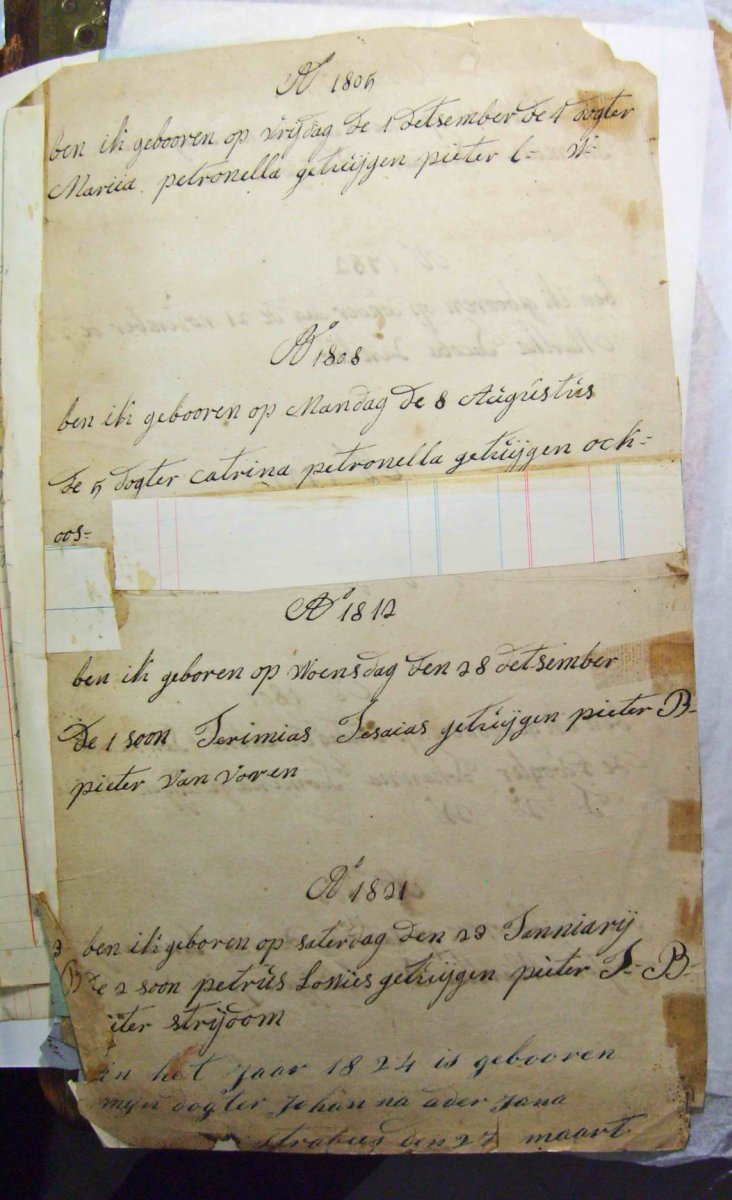 Aº 1805
ben ik gebooren op vrijdag de 1 detsember de 4 dogter
Mariia petronella getuijgen pieter
Aº 1808
ben ik gebooren op Mandag de 8 Augustus
de 5 dogter catrina petronella getuijgen ock=
oos=
Aº 1812
ben ik geboren op Woensdag den 28 detsember
De 1 soon Jerimias Jesaias getuijgen pieter B-
pieter van voren
Aº 1821
ben ik geboren op saterdag den 23 Janniarij
de 2 soon petrus Lonies getuijgen pieter J- B-
iter strijdom
in het Jaar 1824 is gebooren
myn dogter Johanna
den 27 maart